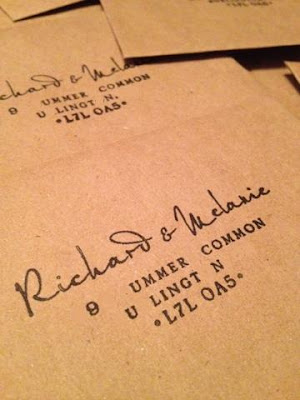 chard & Melanie
9 UMMER COMMON
U LINGT N.
•L7L OA5•
Richard & Melanie
9 UMMER COMMON
U LINGT N
•L7L OA5•